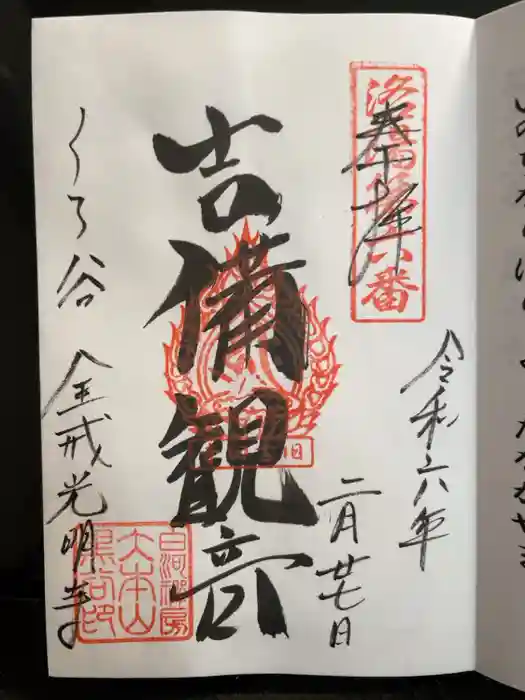 奉拝
洛陽第六番
令和六年
二月廿七日
吉備観音
くろ谷 金戒光明寺
白河禅房
大本山
黒谷印